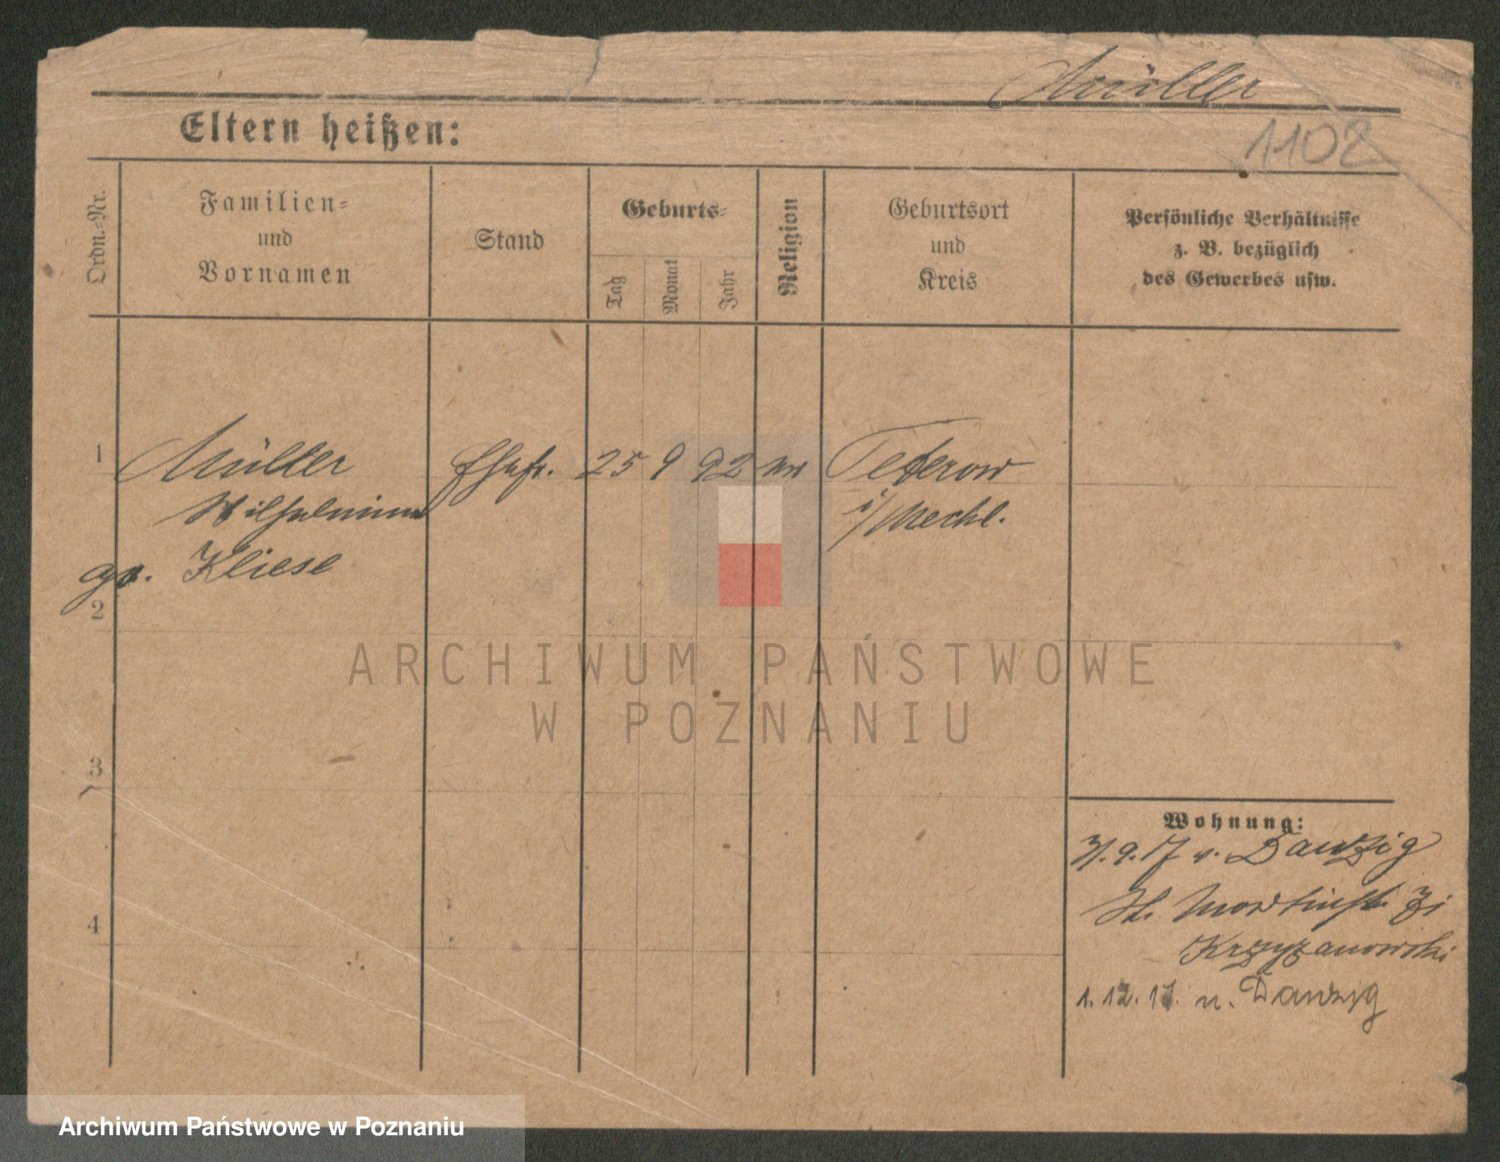 Müller
Eltern heißen:
1102
Ordn.-Nr.
Familien-
und
Vornamen
Stand
Geburts-
Tag
Monat
Jahr
Religion
Geburtsort
und
Kreis
Persönliche Verhältnisse
z. B. bezüglich
des Gewerbes usw.
1 Müller Ehefr. 25 9 92 ev Teterow
Wilhelmine i/Mechl.
ge. Kliese
2
ARCHIWUM PAŃSTWOWE
W POZNANIU
3
Wohnung:
3/.9.17 v. Danzig
St. Martinstr.
Krzyzanowski
4
1.12.17. n. Danzig
Archiwum Państwowe w Poznaniu